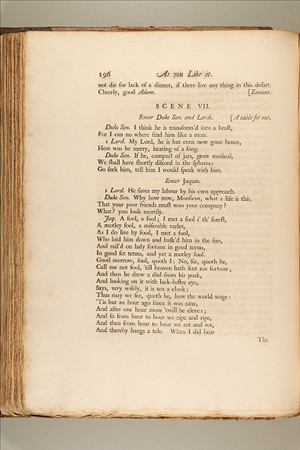 196 As you Like it.
not die for lack of a dinner, if there live any thing in this desart.
Cheerly, good Adam. [Exeunt.
SCENE VII.
Enter Duke Sen. and Lords. [A table set out.
Duke Sen. I think he is transform'd into a beast,
For I can no where find him like a man.
1 Lord. My Lord, he is but even now gone hence,
Here was he merry, hearing of a song.
Duke Sen. If he, compact of jars, grow musical,
We shall have shortly discord in the spheres:
Go seek him, tell him I would speak with him.
Enter Jaques.
1 Lord. He saves my labour by his own approach.
Duke Sen. Why how now, Monsieur, what a life is this,
That your poor friends must woo your company?
What? you look merrily.
Jaq. A fool, a fool; I met a fool i' th' forest,
A motley fool, a miserable varlet,
As I do live by food, I met a fool,
Who laid him down and bask'd him in the sun,
And rail'd on lady fortune in good terms,
In good set terms, and yet a motley fool.
Good morrow, fool, quoth I: No, Sir, quoth he,
Call me not fool, 'till heaven hath sent me fortune;
And then he drew a dial from his poak,
And looking on it with lack-lustre eye,
Says, very wisely, it is ten a clock:
Thus may we see, quoth he, how the world wags:
'Tis but an hour ago since it was nine,
And after one hour more 'twill be eleven;
And so from hour to hour we ripe and ripe,
And then from hour to hour we rot and rot,
And thereby hangs a tale. When I did hear
The